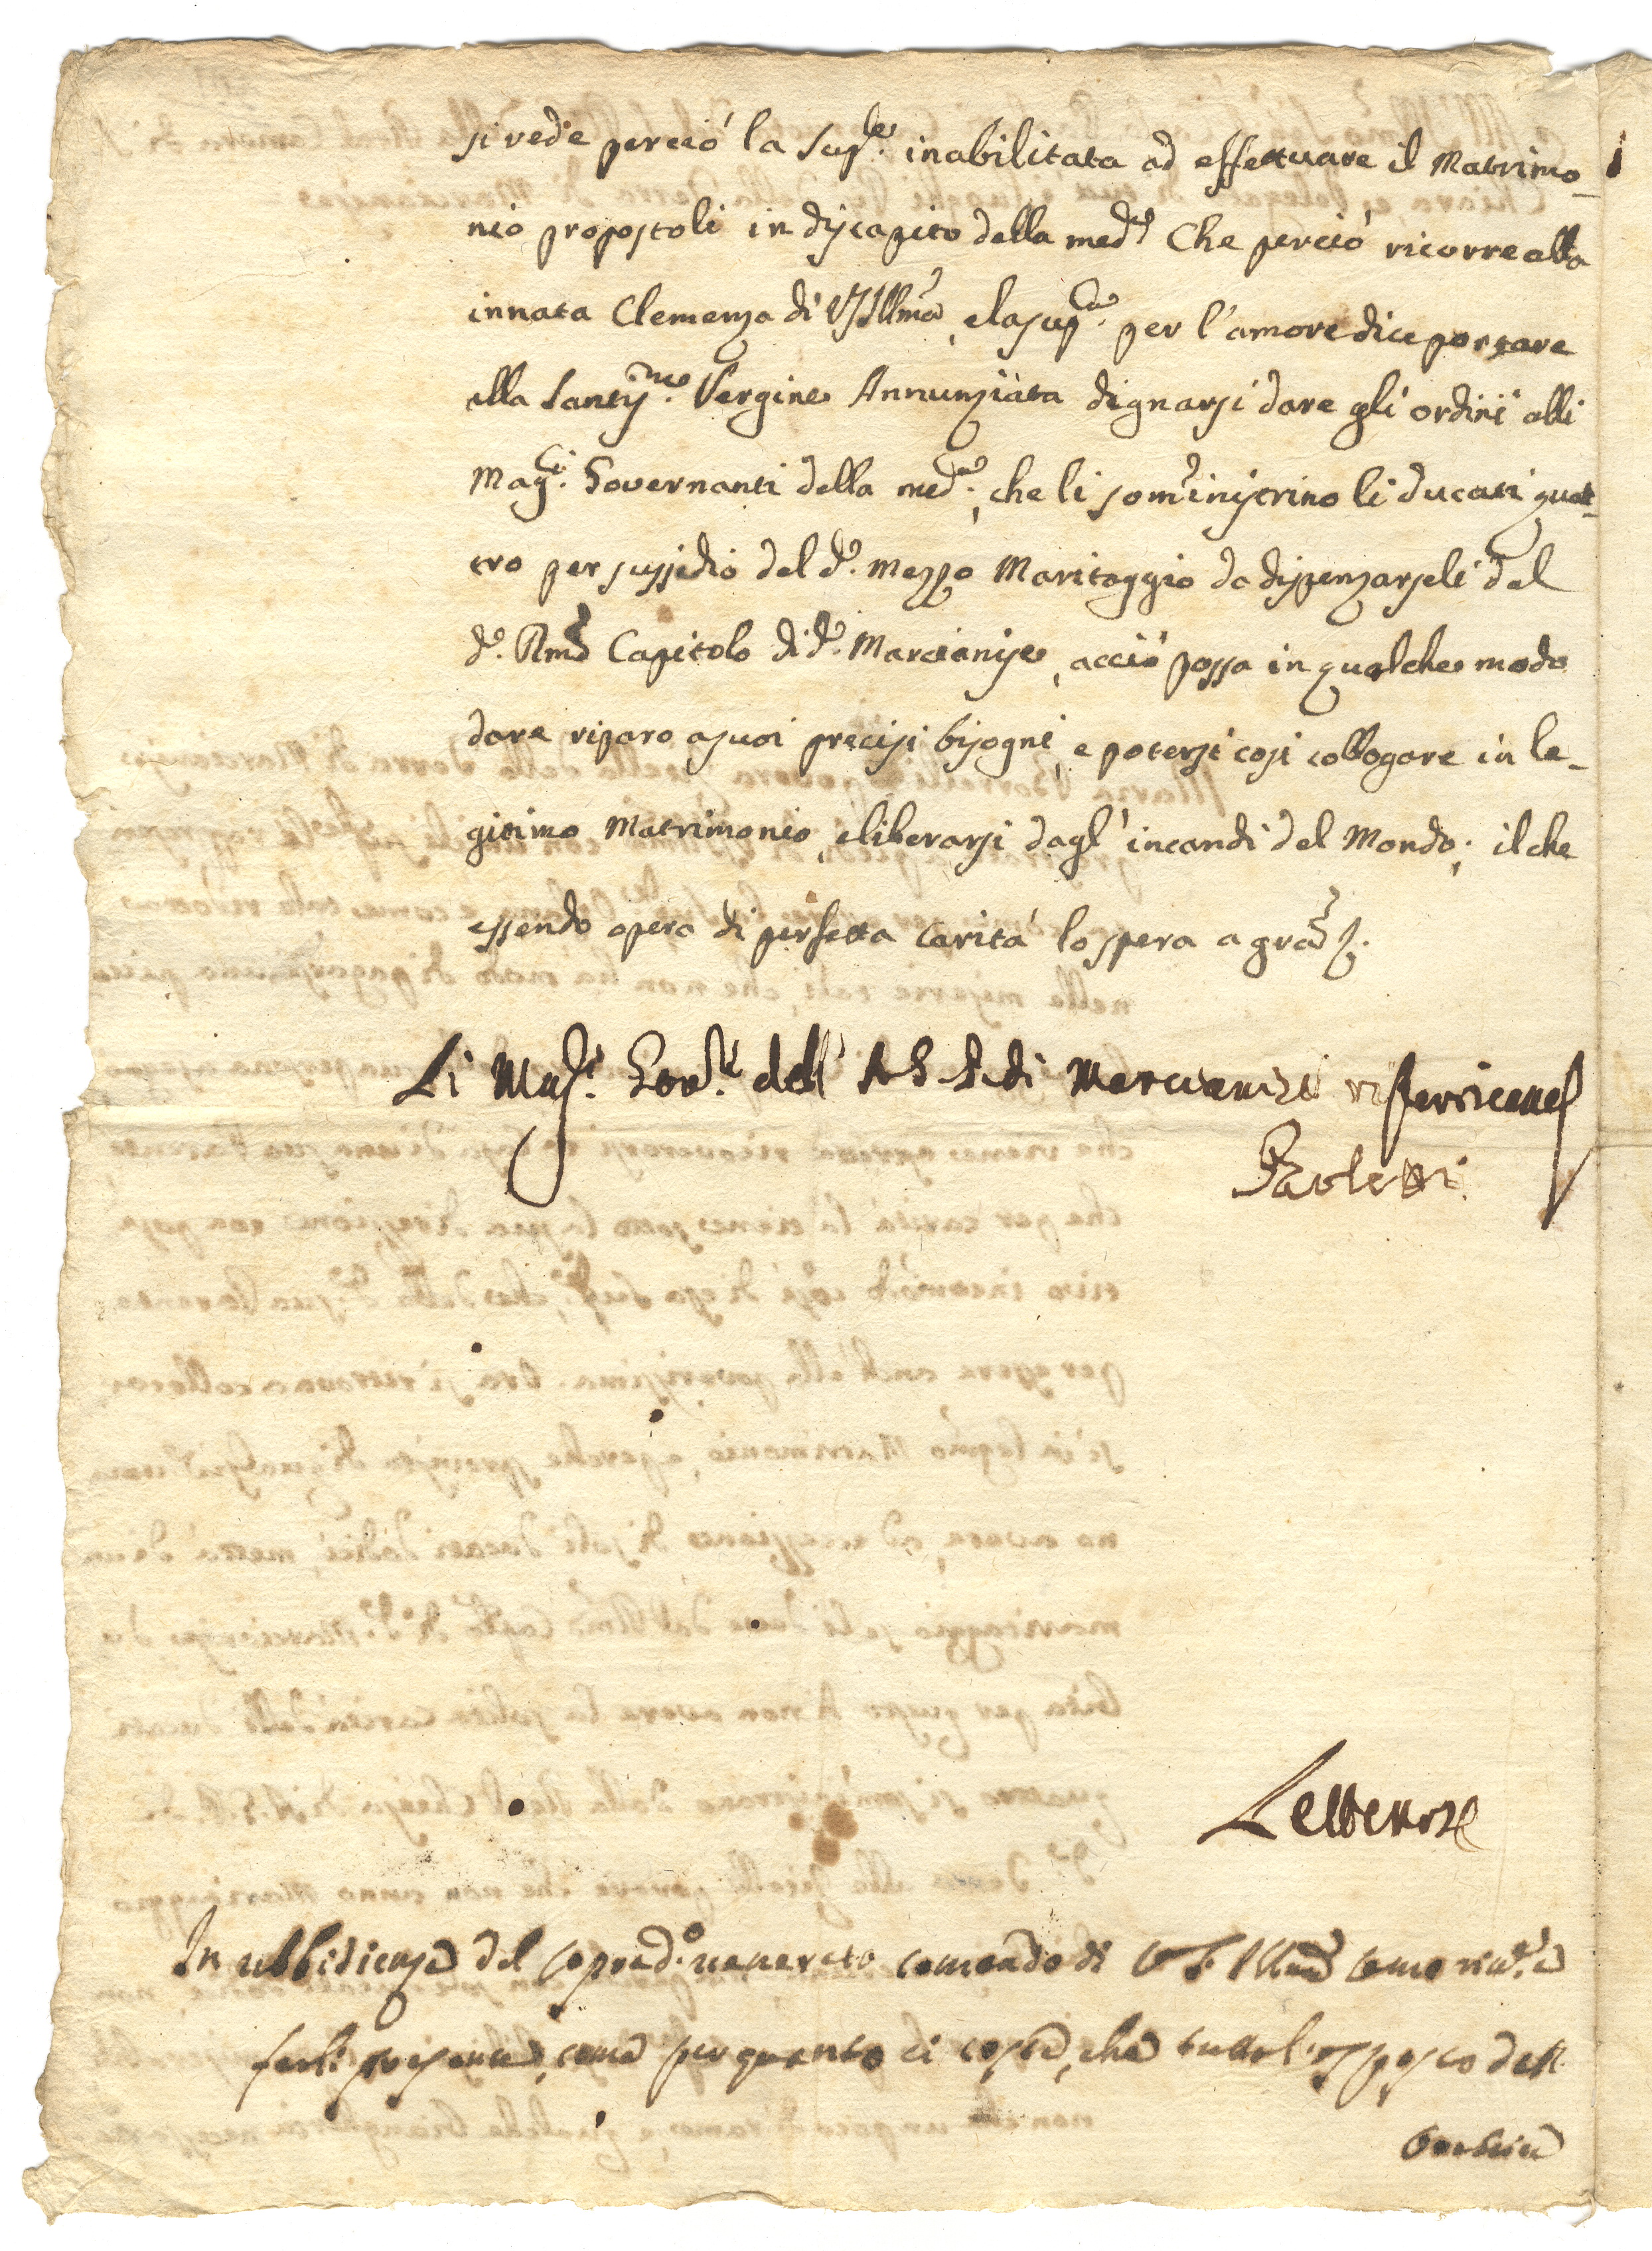 si vede perciò la Sup.le inabilitata ad effettuare il Matrimo-
nio propostoli in discapito della med.a Che perciò ricorre alla
innata Clemenza di VS Illma, e la sup.ca per l'amore dice portare
alla Santis.ma Vergine Annunziata dignarsi dare gli ordini alli
Mag.ci Governanti della med.a, che li somministrino li ducati quat-
tro per sussidio del d.o mezzo Maritaggio da dispenzarseli dal
d.o Rmo Capitolo di d.a Marcianise, acciò possa in qualche modo
dare riparo a suoi precisi bisogni, e potersi così collogare in le-
gitimo Matrimonio, e liberarsi dagl' incandi del Mondo; il che
essendo opera di perfetta carità lo spera a gra
Li Mag.ci Gov.ri dell' A G P di Marcianisi
Pauletti
In ubbidienza del soprad.o venerato comando di V S Illma
farli presente, come per quanto ci costa, che tutto l'esposto dell'